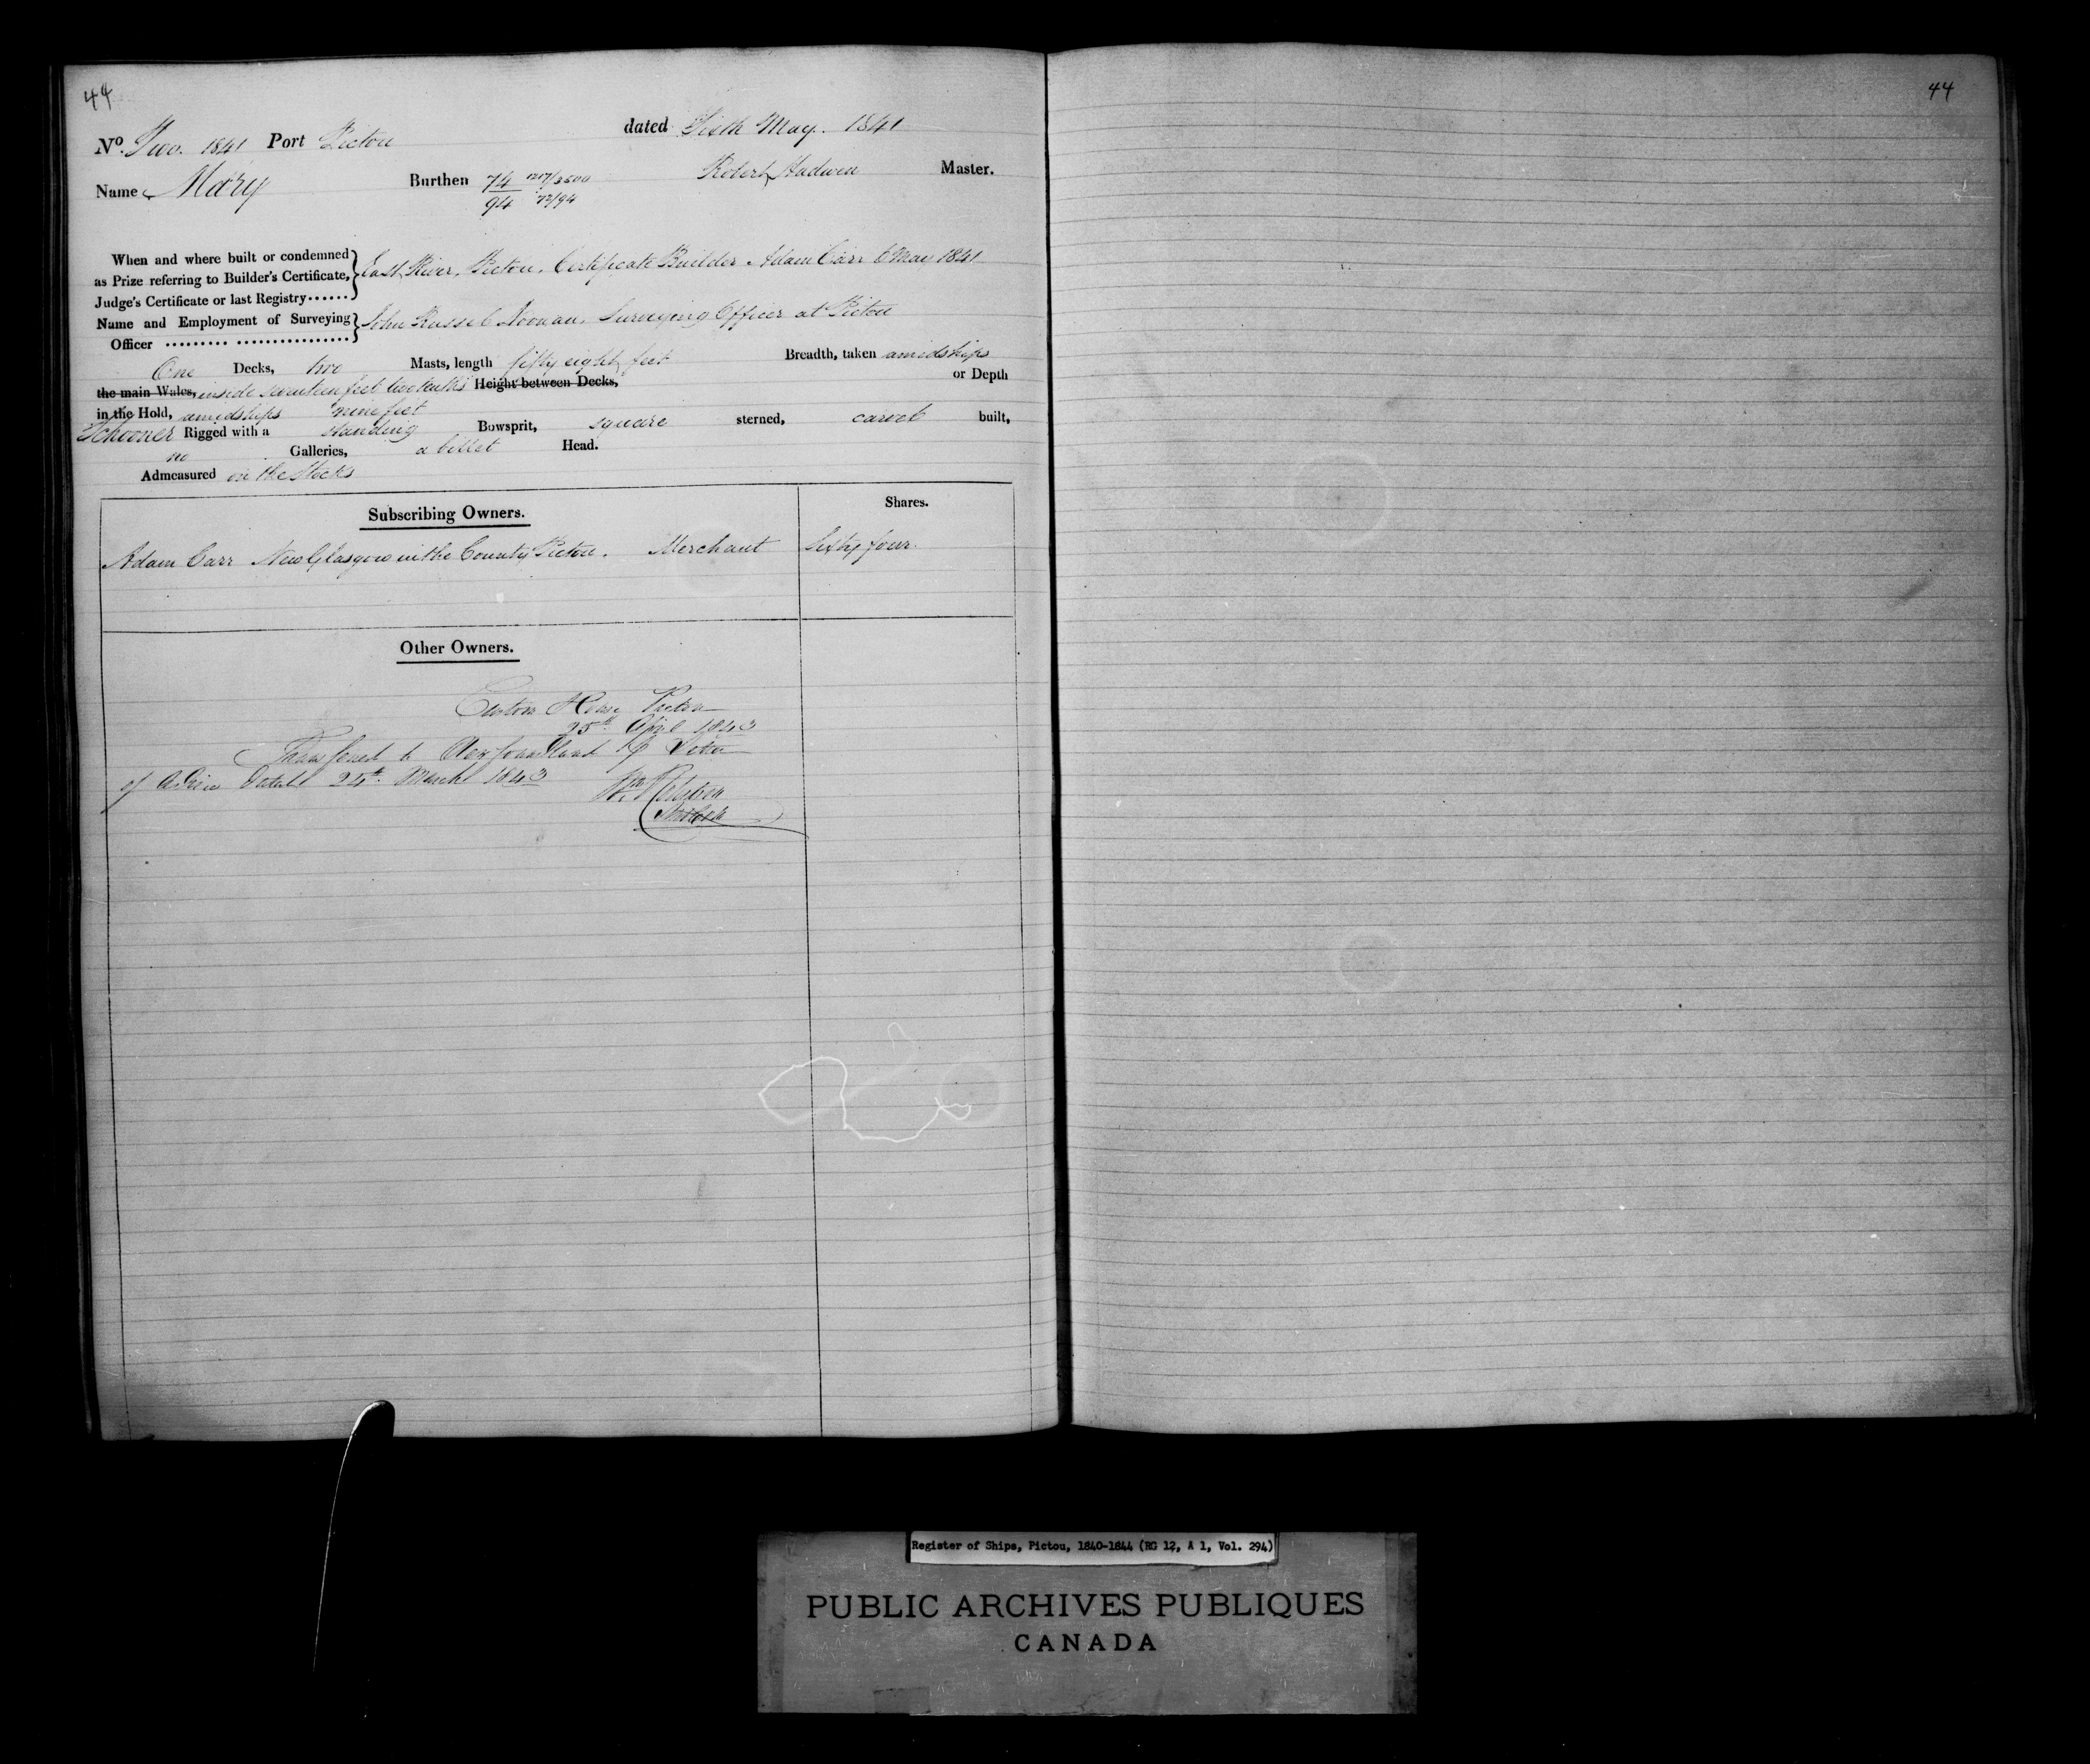 44
44
No. Two. 1841 Port Pictou dated Sixth May. 1841
Name Mary Burthen 74 1207/3500 Robert Hadwen Master.
94 72/94
When and where built or condemned
as Prize referring to Builder's Certificate, East River, Pictou. Certificate Builder Adam Carr 6 May 1841
Judge's Certificate or last Registry......
Name and Employment of Surveying John Russel Noonan. Surveying Officer at Pictou
Officer ......... ................
One Decks, two Masts, length fifty eight feet Breadth, taken amidships
the main Wales, inside seventeen feet two tenths Height between Decks, or Depth
in the Hold, amidships nine feet
Schooner Rigged with a standing Bowsprit, square sterned, carvel built,
no Galleries, a billet Head.
Admeasured on the Stocks
Subscribing Owners. Shares.
Adam Carr New Glasgow in the County Pictou. Merchant Sixty four.
Other Owners.
Custom House Pictou
25th April 1843
Transfered to Newfoundland
of Advice dated 24th March 1843
Register of Ships, Pictou, 1840-1844 (RG 12, A 1, Vol. 294)
PUBLIC ARCHIVES PUBLIQUES
CANADA